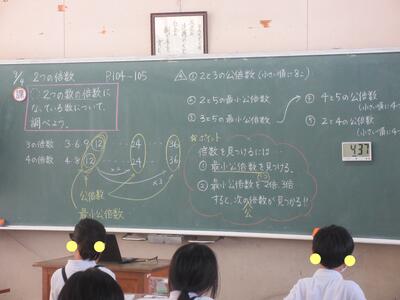 9/4 2つの倍数 P.104~105
課
2つの数の倍数に
なっている数について、
調べよう。
3の倍数 3・6・9 12 … 24 … 36
4の倍数 4・8 12 … 24 … 36
×2
×3
公倍数
最小公倍数
① 2と3の公倍数(小さい順に8こ)
② 2と5の最小公倍数
③ 3と5の最小公倍数
④ 4と5の公倍数
(小さい
⑤ 2と4の公倍数
(小さい
☆ポイント
倍数を見つけるには…
① 最小公倍数を見つける。
② 最小公倍数を2倍、3倍
すると、次の倍数が見つかる!!
公
437